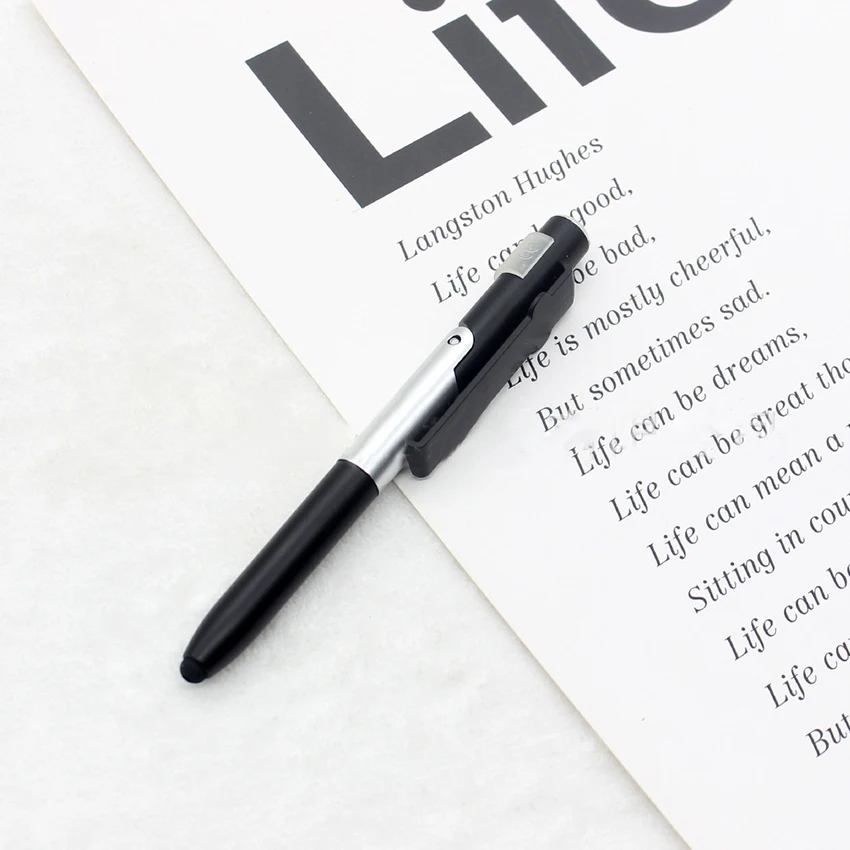 Life
Langston Hughes
Life can be good,
be bad,
Life is mostly cheerful,
But sometimes sad.
Life can be dreams,
Life can be great
Life can mean a
Sitting in
Life can
Life
But